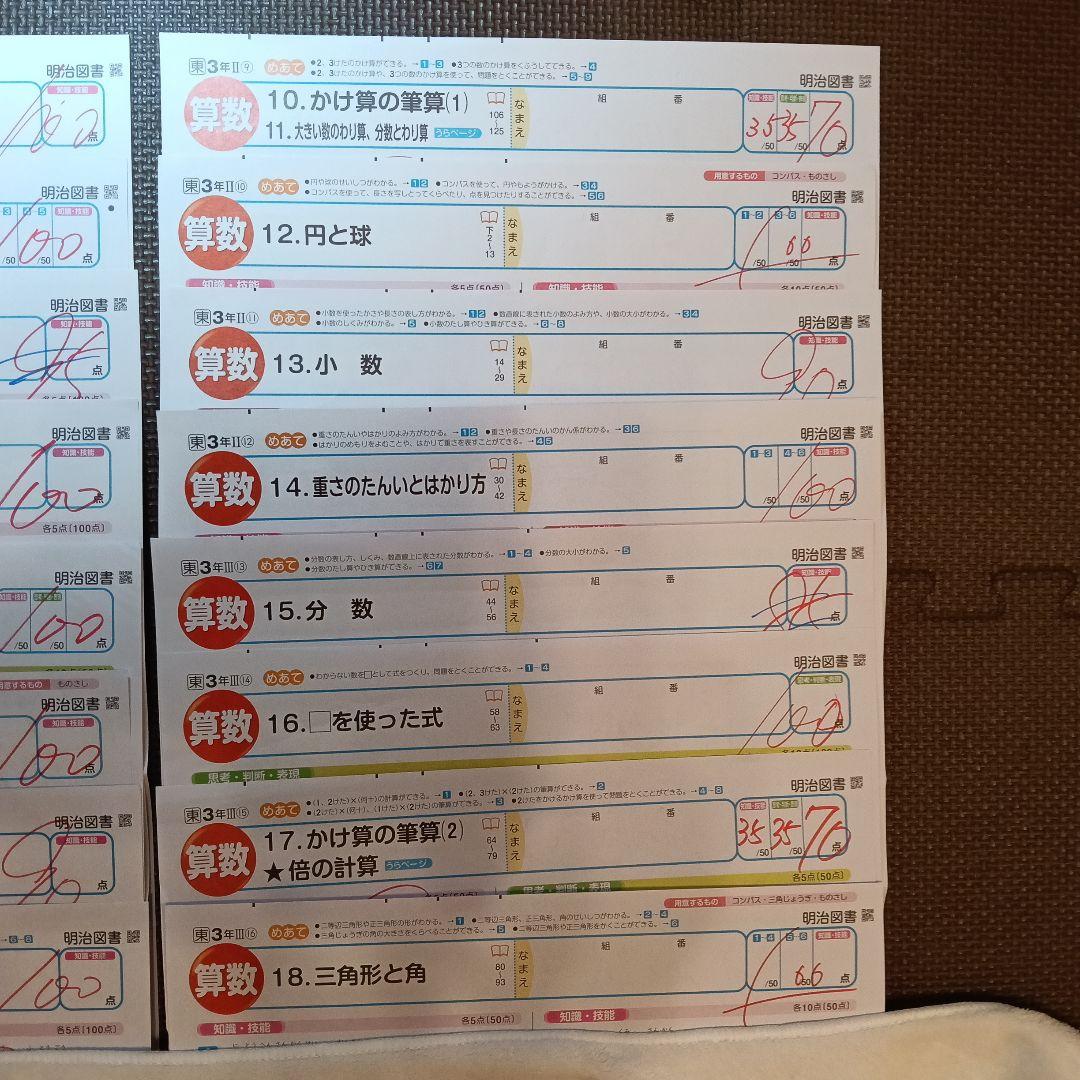 明治図書
知識・技能
100
点
明治図書
3 4~5 知識・技能
100
/50 /50 点
明治図書
知識・技能
95
点
明治図書
知識・技能
100
点
各5点(100点)
明治図書
知識・技能
100
/50 /50 点
用意するもの ものさし
明治図書
知識・技能
100
点
明治図書
知識・技能
90
点
6~8 明治図書
知識・技能
100
点
各5点(100点)
東3年II⑨ めあて ●2、3けたのかけ算ができる。→1~3 ●3つの数のかけ算をくふうしてできる。→4
●2、3けたのかけ算や、3つの数のかけ算を使って、問題をとくことができる。→5~9
明治図書
算数 10.かけ算の筆算(1)
11.大きい数のわり算、分数とわり算 うらページ
106~125
なまえ 組 番
知識・技能 思考・判断・表現
35 35 70
/50 /50 点
東3年II⑩ めあて ●円や球のせいしつがわかる。→12 ●コンパスを使って、円やもようがかける。→34
●コンパスを使って、長さを写しとってくらべたり、点を見つけたりすることができる。→56
用意するもの コンパス・ものさし
明治図書
算数 12.円と球
下2~13
なまえ 組 番
1~2 3~6 知識・技能
100
/50 /50 点
知識・技能 各5点(50点) 知識・技能 各10点(50点)
東3年II⑪ めあて ●小数を使ったかさや長さの表し方がわかる。→12 ●数直線に表された小数のよみ方や、小数の大小がわかる。→34
●小数のしくみがわかる。→5 ●小数のたし算やひき算ができる。→6~8
明治図書
算数 13.小 数
14~29
なまえ 組 番
知識・技能
90
点
東3年II⑫ めあて ●重さのたんいやはかりのよみ方がわかる。→12 ●重さや長さのたんいのかん係がわかる。→36
●はかりのめもりをよむことや、はかりで重さを表すことができる。→45
明治図書
算数 14.重さのたんいとはかり方
30~42
なまえ 組 番
1~3 4~6 知識・技能
100
/50 /50 点
東3年III⑬ めあて ●分数の表し方、しくみ、数直線上に表された分数がわかる。→1~4 ●分数の大小がわかる。→5
●分数のたし算やひき算ができる。→67
明治図書
算数 15.分 数
44~56
なまえ 組 番
知識・技能
点
東3年III⑭ めあて ●わからない数を□として式をつくり、問題をとくことができる。→1~4
明治図書
算数 16.□を使った式
58~63
なまえ 組 番
思考・判断・表現
100
点
思考・判断・表現
東3年III⑮ めあて ●(1、2けた)×(何十)の計算ができる。→1 ●(2、3けた)×(2けた)の筆算ができる。→2
●(2けた)×(何十)、(1けた)×(2けた)の筆算ができる。→3 ●2けたをかけるかけ算を使って問題をとくことができる。→4~8
明治図書
算数 17.かけ算の筆算(2)
★倍の計算 うらページ
64~79
なまえ 組 番
知識・技能 思考・判断・表現
35 35 70
/50 /50 点
各5点(50点)
思考・判断・表現
用意するもの コンパス・三角じょうぎ・ものさし
東3年III⑯ めあて ●二等辺三角形や正三角形の形がわかる。→1 ●二等辺三角形、正三角形、角のせいしつがわかる。→2~4
●三角じょうぎの角の大きさをくらべることができる。→5 ●二等辺三角形や正三角形をかくことができる。→6
明治図書
算数 18.三角形と角
80~93
なまえ 組 番
1~4 5~6 知識・技能
100
/50 /50 点
知識・技能 各5点(50点) 知識・技能 各10点(50点)